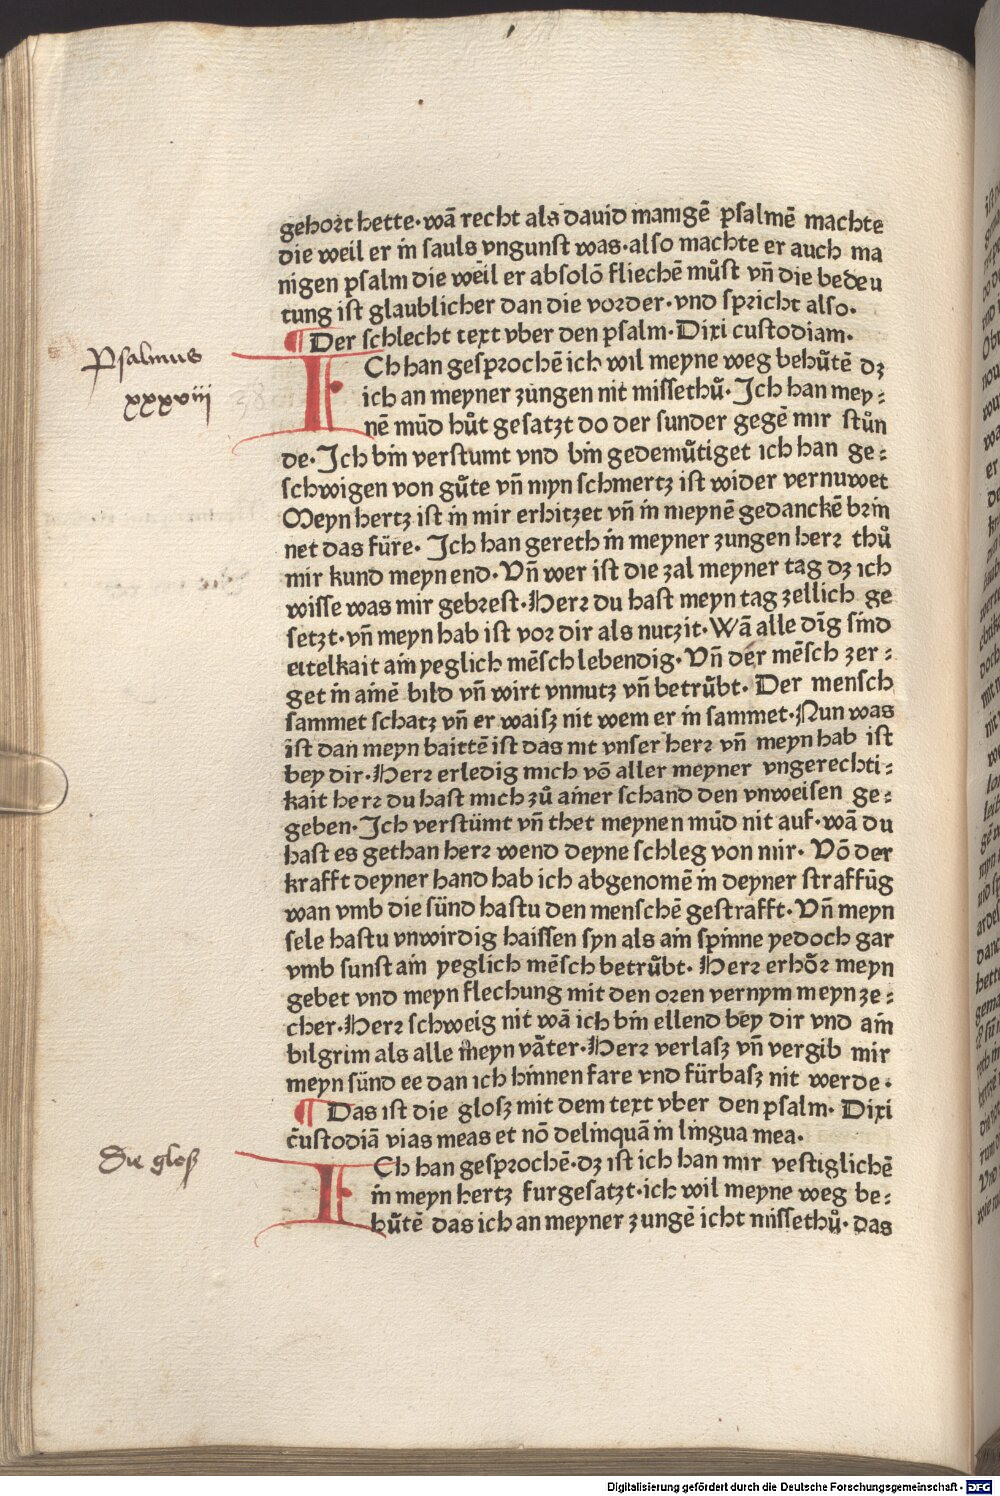 gehort hette·wā recht als dauid manigē psalmē machte
die weil er in sauls vngunst was·also machte er auch ma
nigen psalm die weil er absolō fliechē můst vñ die bedeu
tung ist glaublicher dan die vorder·vnd spricht also·
¶ Der schlecht text vber den psalm·Dixi custodiam·
Psalmus
xxxviii
ICh han gesprochē ich wil meyne weg behůtē dz
ich an meyner zungen nit missethů·Ich han mey⸗
nē mūd hůt gesatzt do der sunder gegē mir stůn
de·Ich bin verstumt vnd bin gedemůtiget ich han ge⸗
schwigen von gůte vñ myn schmertz ist wider vernuwet
Meyn hertz ist in mir erhitzet vñ in meynē gedanckē brin
net das füre· Ich han gereth in meyner zungen herr thů
mir kund meyn end·Vñ wer ist die zal meyner tag dz ich
wisse was mir gebrest·Herr du hast meyn tag zellich ge
setzt·vñ meyn hab ist vor dir als nutzit·Wā alle dīg sind
eitelkait ain yeglich mēsch lebendig·Vñ der mēsch zer⸗
get in ainē bild vñ wirt vnnutz vñ betrůbt·Der mensch
sammet schatz vñ er waisz nit wem er in sammet·Nun was
ist dan meyn baittē ist das nit vnser herr vñ meyn hab ist
bey dir·Herr erledig mich vō aller meyner vngerechti⸗
kait herr du hast mich zů ainer schand den vnweisen ge⸗
geben·Ich verstümt vñ thet meynen mūd nit auf·wā du
hast es gethan herr wend deyne schleg von mir· Vō der
krafft deyner hand hab ich abgenomē in deyner straffūg
wan vmb die sünd hastu den menschē gestrafft·Vñ meyn
sele hastu vnwirdig haissen syn als ain spinne yedoch gar
vmb sunst ain yeglich mēsch betrůbt· Herr erhör meyn
gebet vnd meyn flechung mit den oren vernym meyn ze⸗
cher·Herr schweig nit wā ich bin ellend bey dir vnd ain
bilgrim als alle meyn våter·Herr verlasz vñ vergib mir
meyn sünd ee dan ich hinnen fare vnd fürbasz nit werde·
¶ Das ist die glosz mit dem text vber den psalm· Dixi
custodiā vias meas et nō delinquā in lingua mea·
Die glosz
ICh han gesprochē·dz ist ich han mir vestiglichē
in meyn hertz furgesatzt·ich wil meyne weg be⸗
hůtē das ich an meyner zungē icht missethů·das
Digitalisierung gefördert durch die Deutsche Forschungsgemeinschaft - DFG